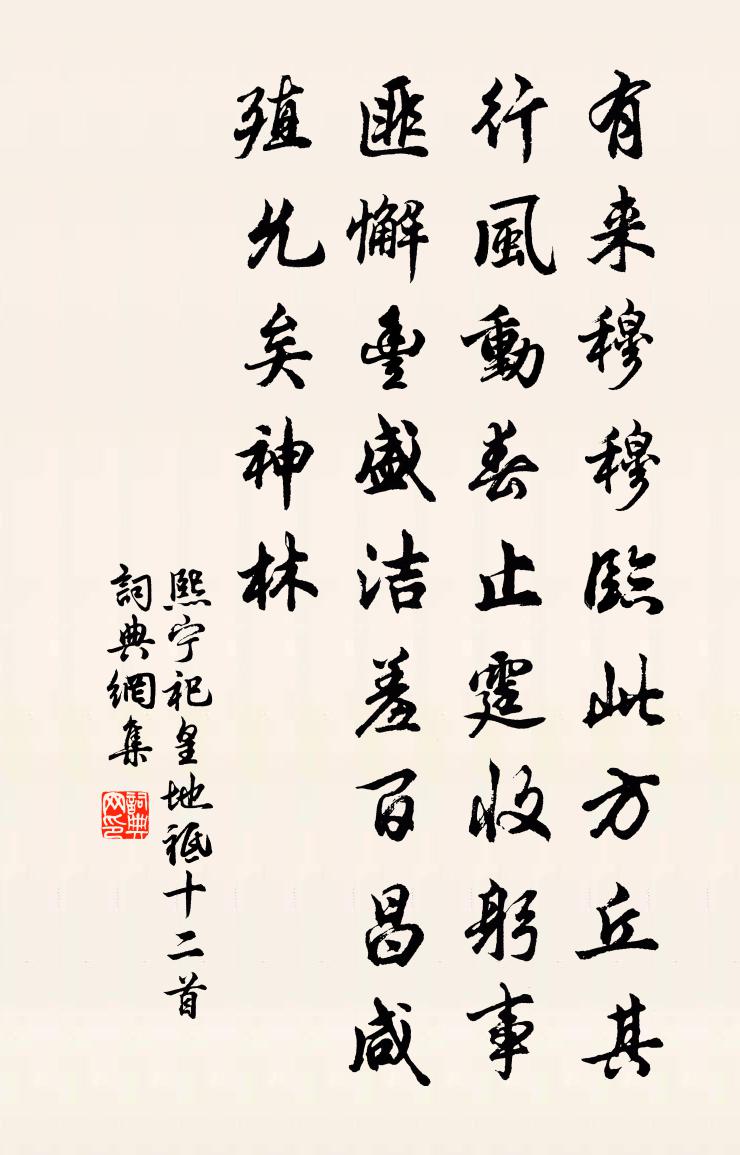 有来穆穆臨此方丘其
行風動春止霆收躬事
匪懈豐盛洁羞百昌咸
殖允矣神林
熙宁祀皇地祗十二首
詞典網集
詞典网印